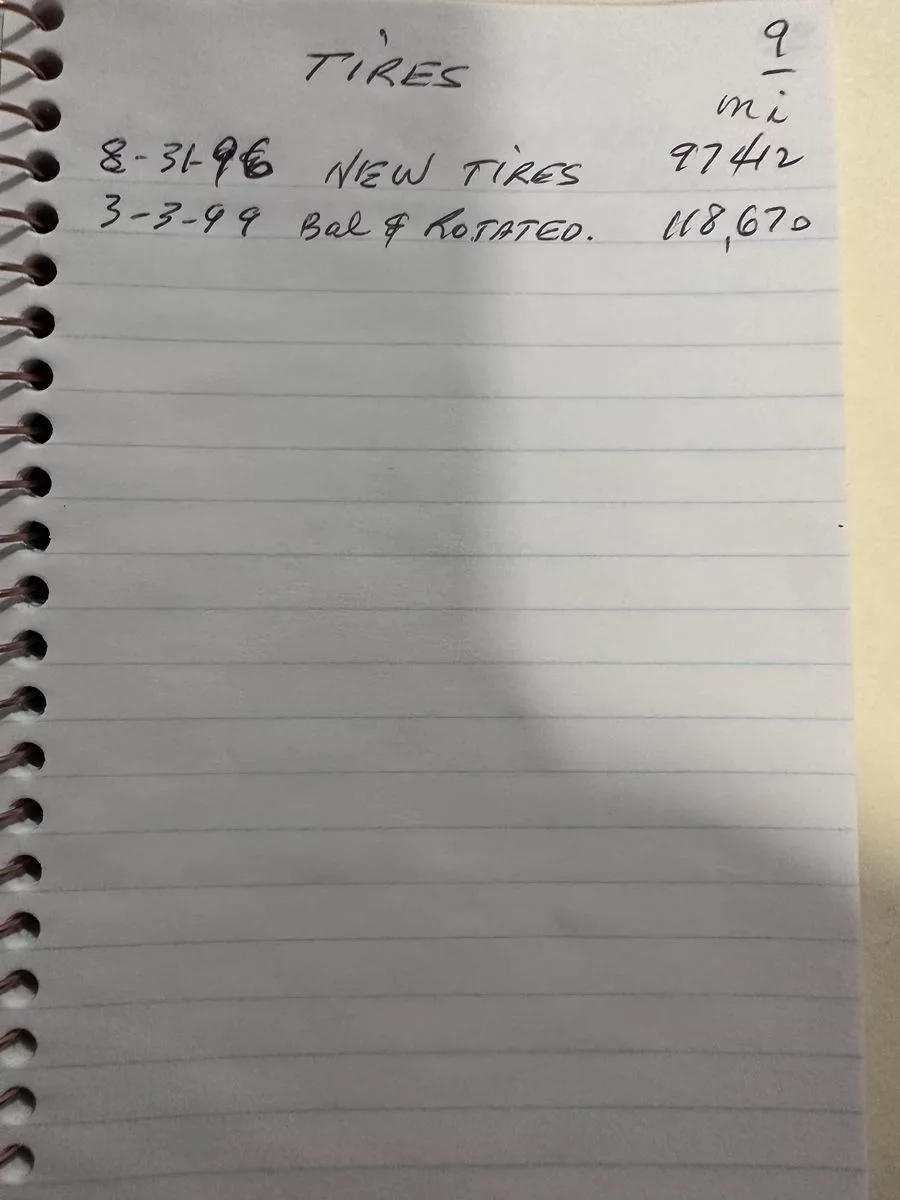 9
TIRES
mi
8-31-96 NEW TIRES 97412
3-3-99 Bal & ROTATED. 118,670